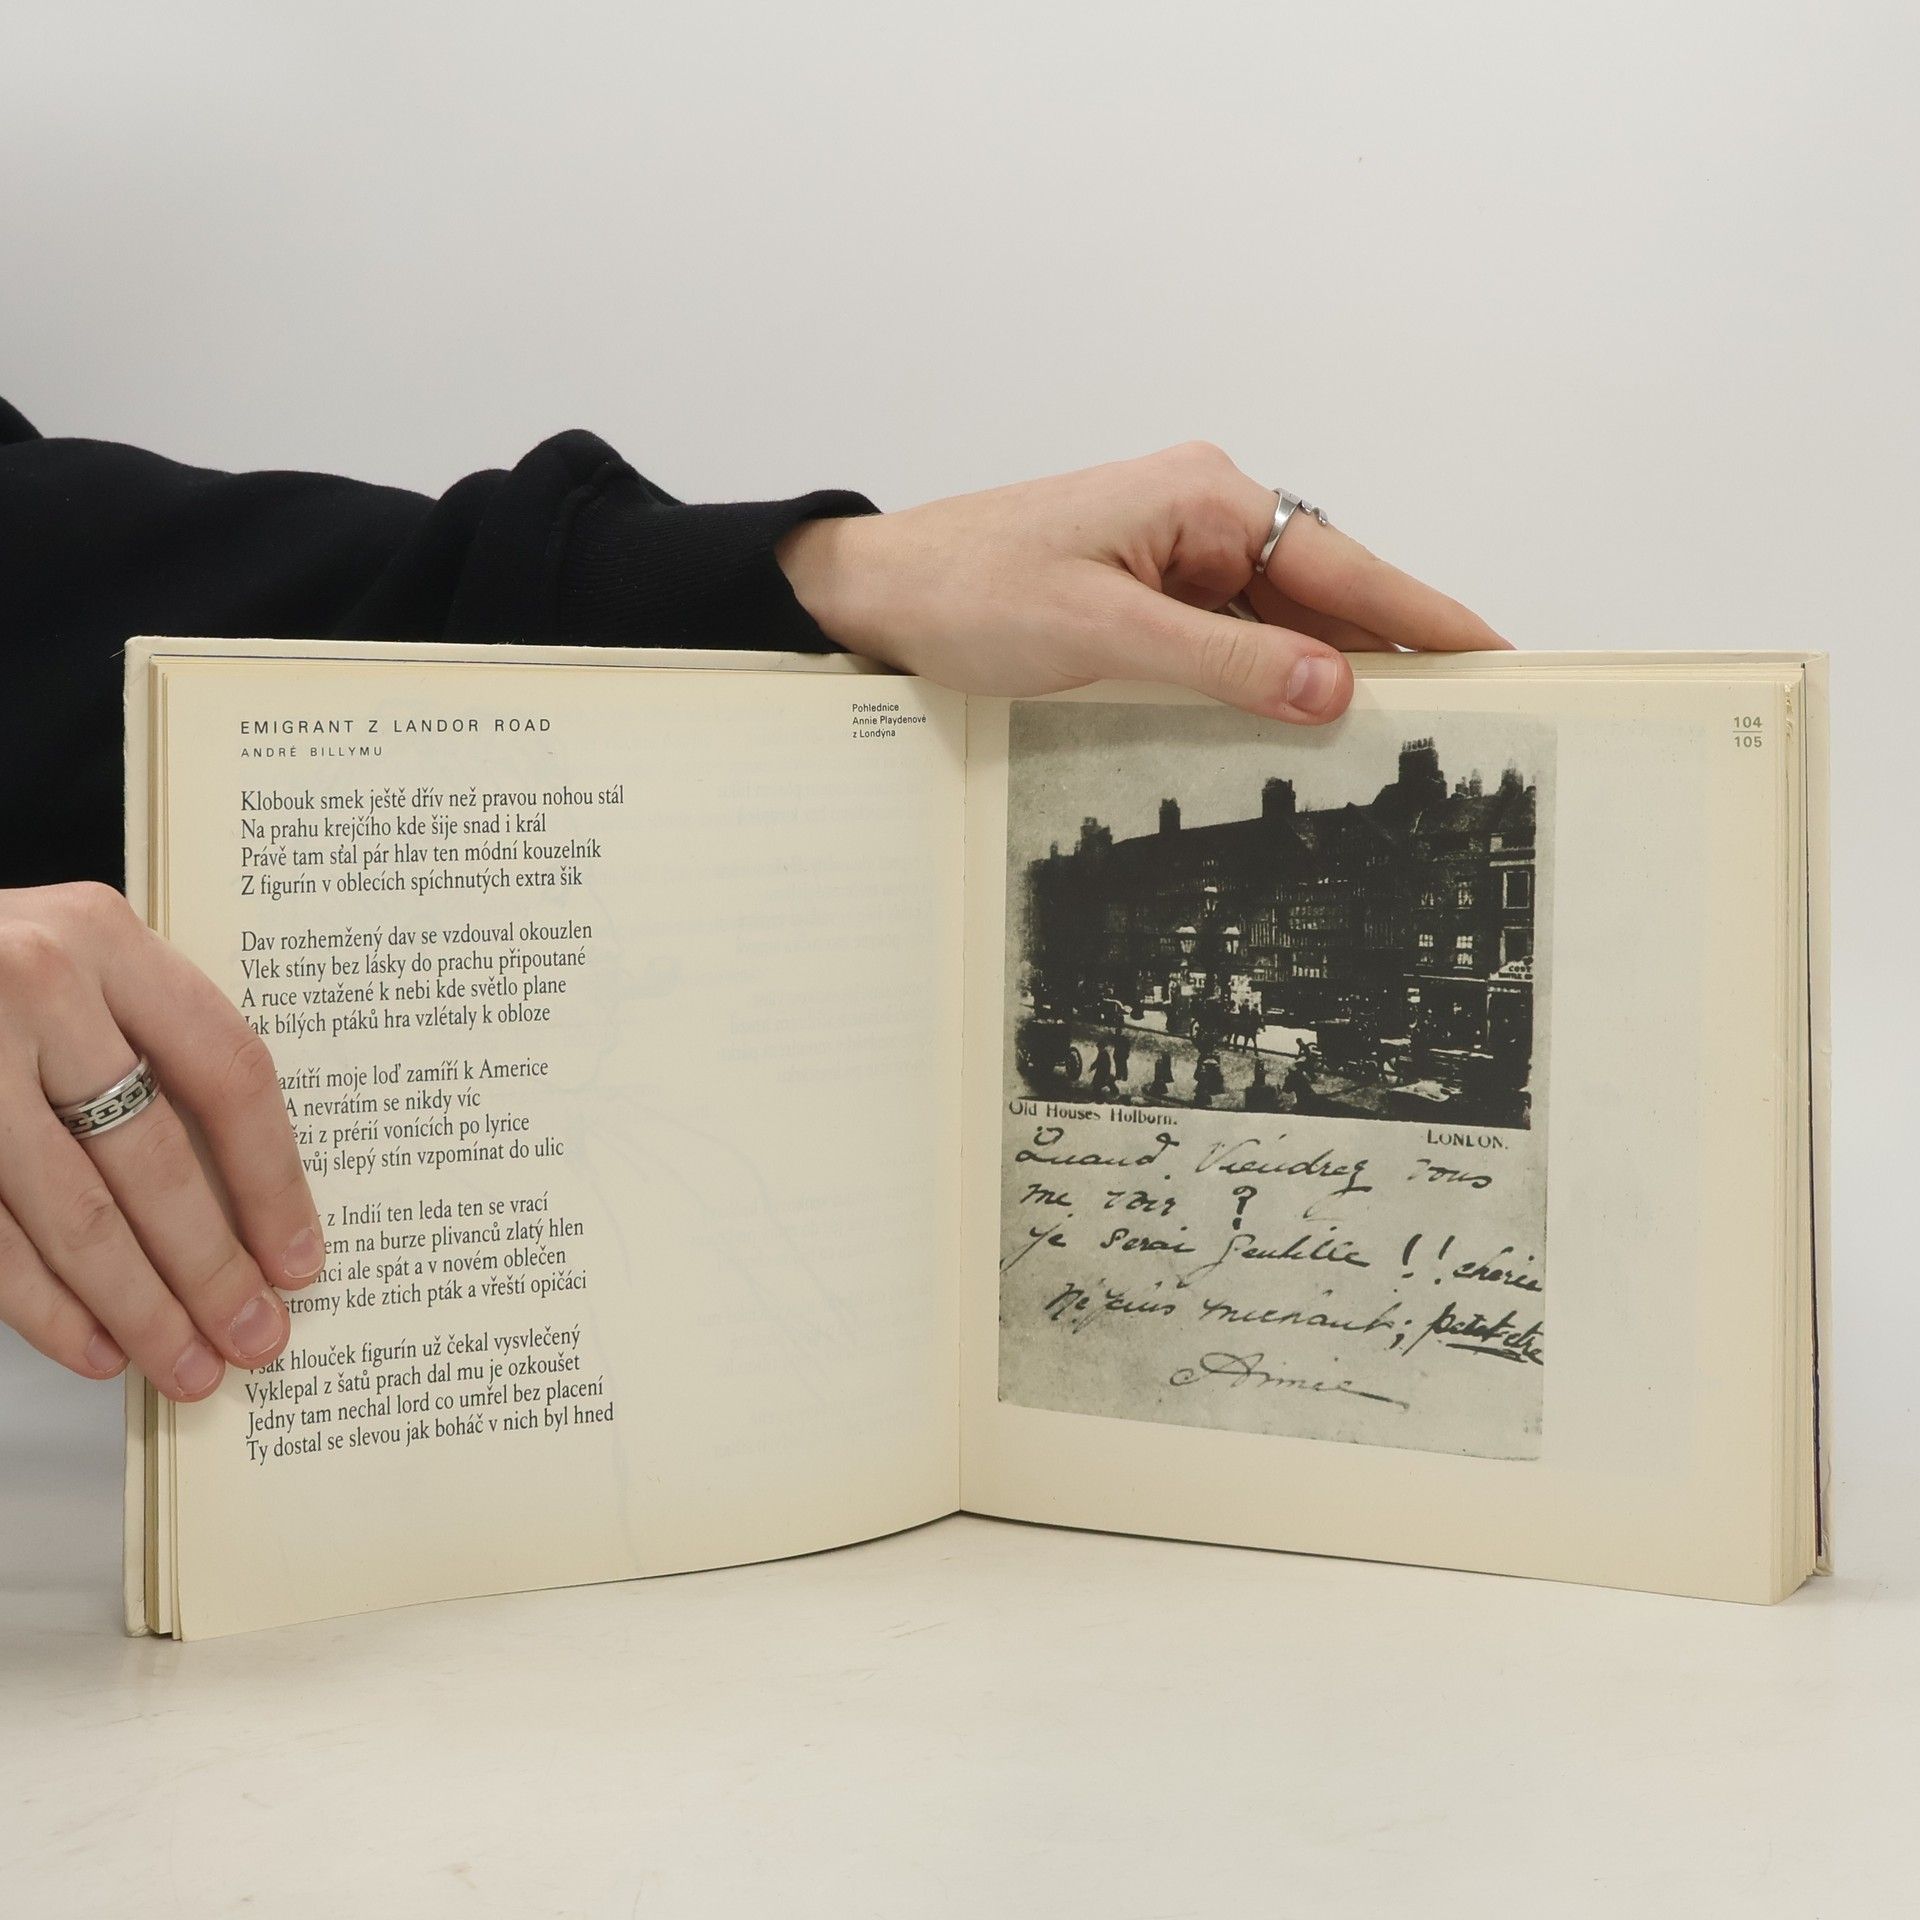 EMIGRANT Z LANDOR ROAD
ANDRÉ BILLYMU
Klobouk smek ještě dřív než pravou nohou stál
Na prahu krejčího kde šije snad i král
Právě tam sťal pár hlav ten módní kouzelník
Z figurín v oblecích spíchnutých extra šik
Dav rozhemžený dav se vzdouval okouzlen
Vlek stíny bez lásky do prachu připoutané
A ruce vztažené k nebi kde světlo plane
Jak bílých ptáků hra vzlétaly k obloze
moje loď zamíří k Americe
A nevrátím se nikdy víc
z prérií vonících po lyrice
svůj slepý stín vzpomínat do ulic
z Indií ten leda ten se vrací
na burze plivanců zlatý hlen
ale spát a v novém oblečen
stromy kde ztich pták a vřeští opičáci
Však hlouček figurín už čekal vysvlečený
Vyklepal z šatů prach dal mu je ozkoušet
Jedny tam nechal lord co umřel bez placení
Ty dostal se slevou jak boháč v nich byl hned
Pohlednice
Annie Playdenové
z Londýna
104
105
Old Houses Holborn.
LONDON.
Quand Viendrez vous
me voir ?
Je serai Gentille !! cherie
peut-etre
Annie